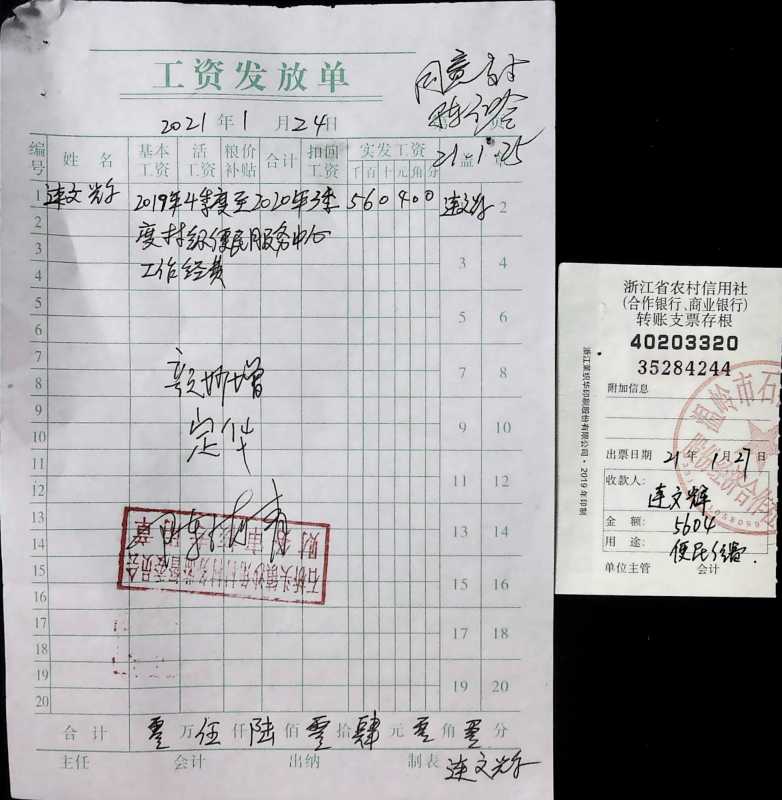 工资发放单
同意支付
21.1.25
2021年1月24日
编号 姓名 基本工资 活工资 粮价补贴 合计 扣回工资 实发工资 盖章
千百十元角分
1 连文辉 2019年4季度至2020年3季 560400 连文辉 2
2 度村级便民服务中心
3 工作经费 3 4
4
5 5 6
6
7 7 8
8
9 9 10
10
11 11 12
12
13 13 14
14
15 15 16
16
17 17 18
18
19 19 20
20
定华
石桥头镇
村务监督委员会
财务审核专用章
合计 零万伍仟陆佰零拾肆元零角零分
主任 会计 出纳 制表 连文辉
浙江省农村信用社
(合作银行、商业银行)
转账支票存根
40203320
35284244
附加信息
出票日期 21年1月27日
收款人:
连文辉
金额: 5604
用途: 便民经费.
单位主管 会计
温岭市石
股份经济合作
浙江某织华印刷股份有限公司·2019年印制